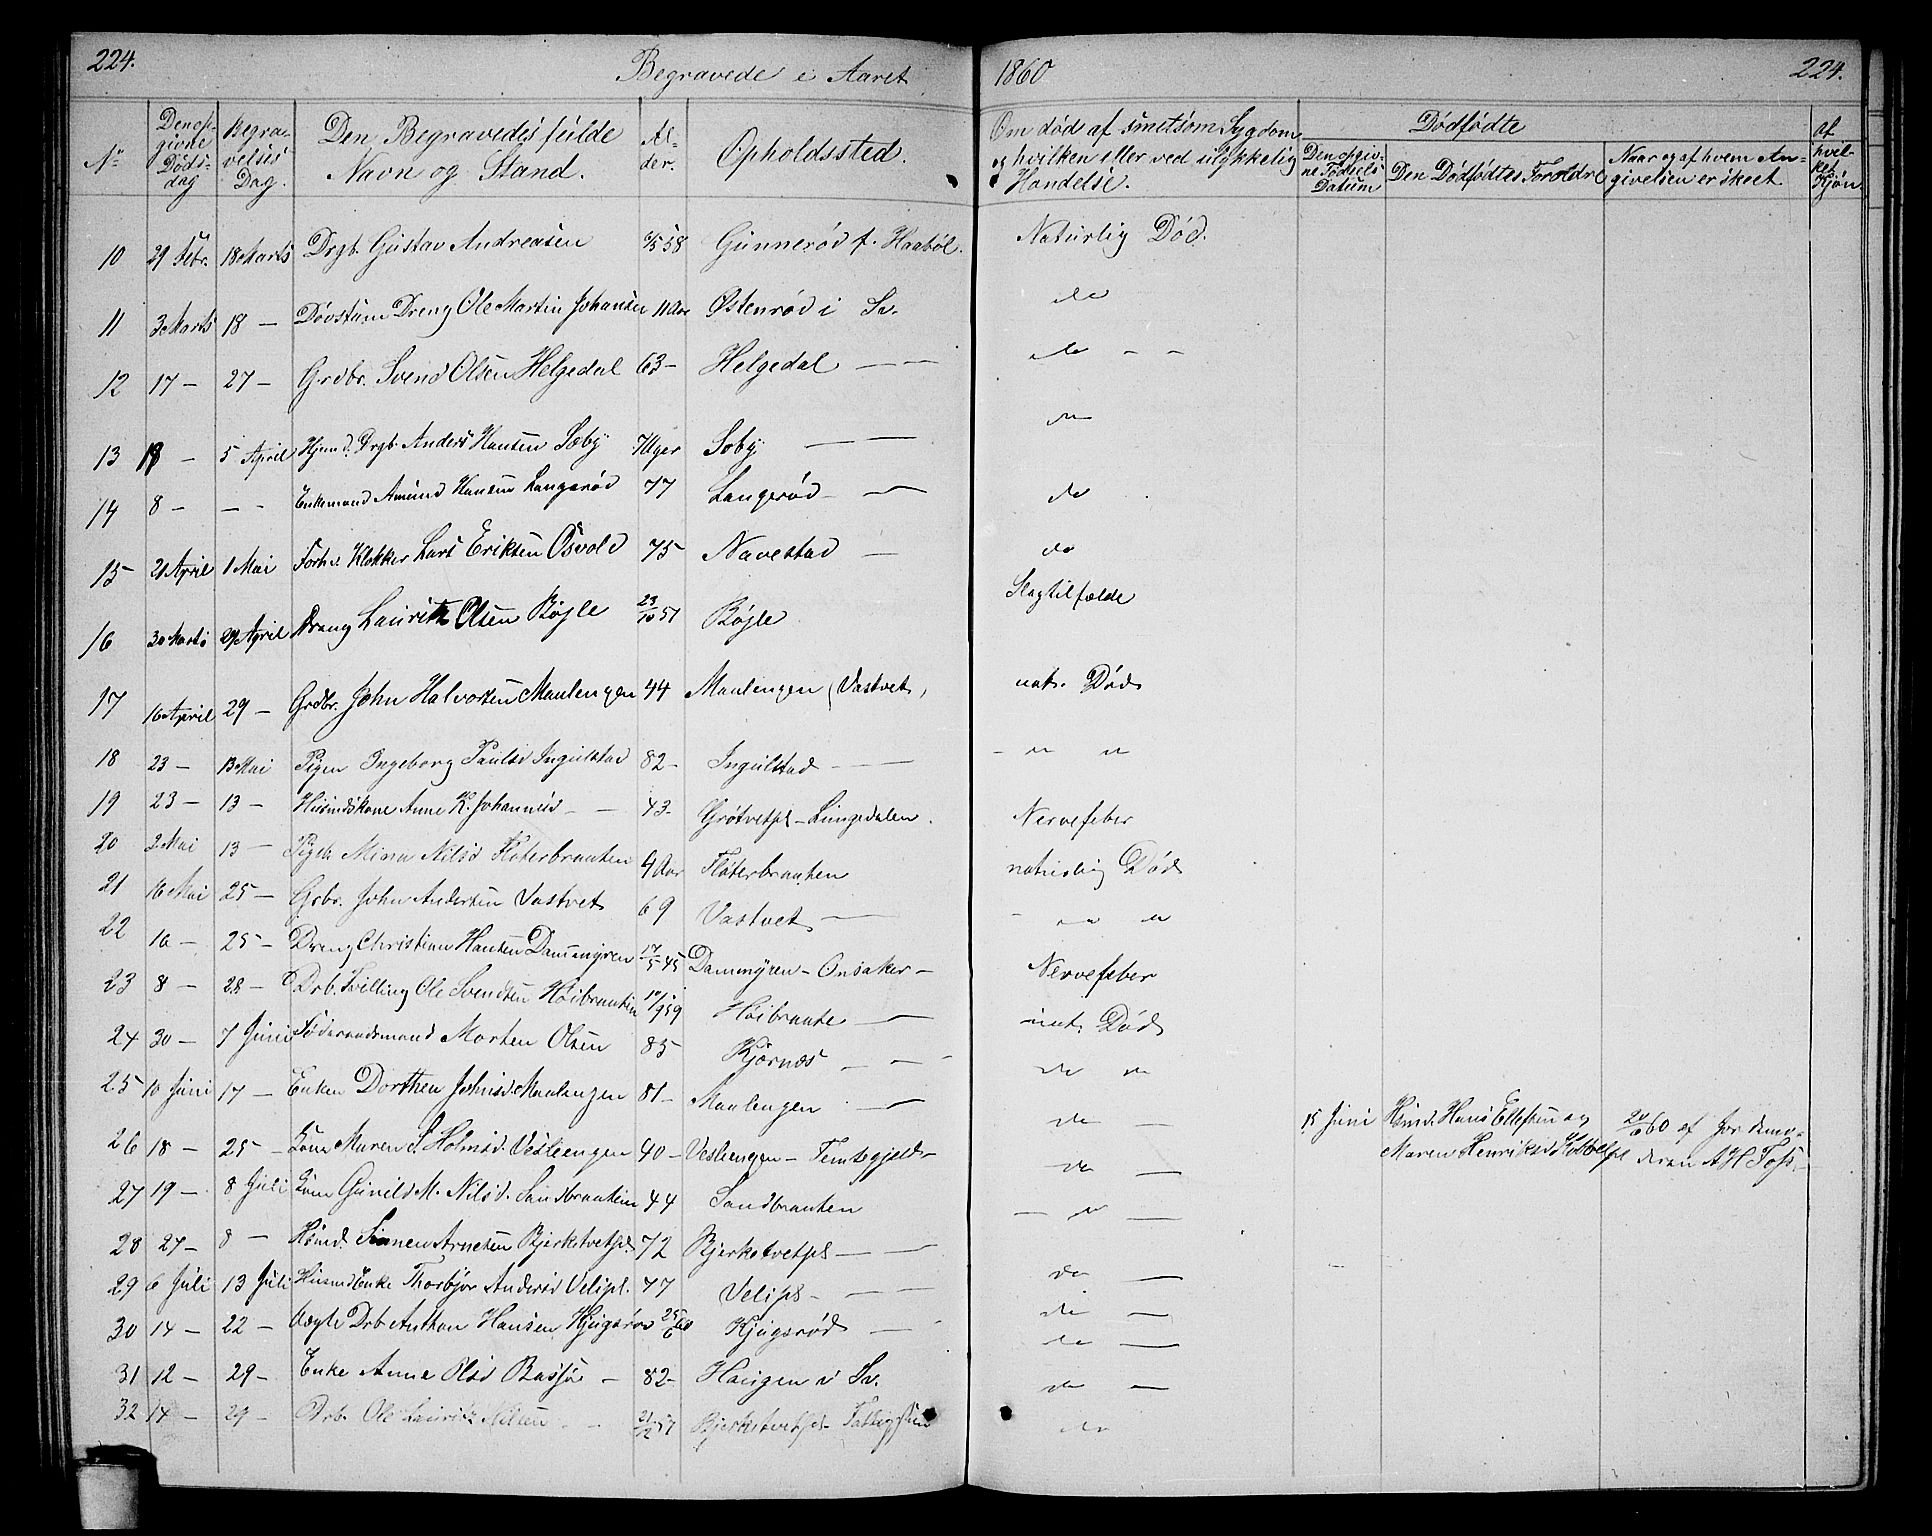 224.
Begravede i Aaret
1860
224.
No
Den op-
givne
Døds-
dag
Begra-
velses
Dag.
Den Begravedes fulde
Navn og Stand.
Al-
der.
Opholdssted.
Om død af smetsom Sygdom
og hvilken eller ved ulykkelig
Handelse.
Dødfødte
Den opgiv-
ne Fødsels
Datum
Den Dødfødtes Foreldre
Naar og af hvem An-
givelsen er skeet
af
hvil-
ket
Kjøn
10 29 Febr. 18 Marts Drgb. Gustav Andreasen 58 Gunnerød f. Haabøl. Naturlig Død.
11 3 Marts 18 — Døvstum Dreng Ole Martin Johansen 11 Aar Østenrød i Sv. do
12 17 — 27 — Grdbr. Svend Olsen Helgedal 63 — Helgedal — — do — —
13 18 — 5 April Hjmd. Drgb. Anders Hansen Sæby 7 Uger Soby — — do
14 8 — — - Enkemand Amund Hansen Langerød 77 Langerød — — do
15 21 April 1 Mai Forhv. Klokker Lars Eriksen Osvold 75 Navestad — do
16 30 Marts 29 April Dreng Lauritz Olsen Bøjle 23/10 51 Bøjle Slagtilfælde
17 16 April 29 — Grdbr. John Halvorsen Maulengen 44 Maulengen (Vastvet) nat. Død
18 23 — 13 Mai Pigen Ingeborg Paulsd Ingulstad 82 — Ingulstad — — - " "
19 23 — 13 — Husmdskone Anne K. Johannesd — — 43. Grøtvetpl — Lungedalen. Nervefeber
20 2 Mai 13 — Pigeb Mina Nilsd Fløterbraaten 9 Aar Fløterbraaten naturlig Død
21 16 Mai 25 — Grbr. John Andersen Vastvet 69 Vastvet — - " "
22 10 — 25 — Dreng Christian Hansen Dammyren 17/5 45 Dammyren — Onsaker — Nervefeber
23 8 — 28 — Drb. Tvilling Ole Svendsen Høibraaten 10/9 59 Høibraate — nat. Død
24 30 — 7 Juni Føderaadsmand Morten Olsen 85 Kjørnæs — — do "
25 10 Juni 17 — Enken Dorthea Johnsd. Maulengen 81 — Maulengen — do —
15 Juni Hsmd. Hans Ellefsen og
Maren Henriksd
20/6 60 af Jordemo-
deren A H Foss.
26 18 — 25 — Kone Maren S. Holmsd. Vestengen 40 — Vestengen — Temtegjeld — do —
27 19 — 8 Juli Kone Gunild M. Nilsd. Sandbraaten 44 Sandbraaten — " —
28 27 — 8 — Hsmd. Simen Arnesen Bjerketvetpl. 72 Bjerketvetpl — — do —
29 6 Juli 13 Juli Husmd Enke Thorbjør Andersd Velipl. 77 Velipl — — — do —
30 14 — 22 — Uægte Drb Anthon Hansen Kjugsrød 25/6 60 Kjugsrød — do —
31 12 — 29 — Enke Anne Olsd Basjø — 82 — Haugen i Sv. do —
32 14 — 29 — Drb. Ole Lauritz Nilsen — — 21/12 57 Bjerketvetpl — do